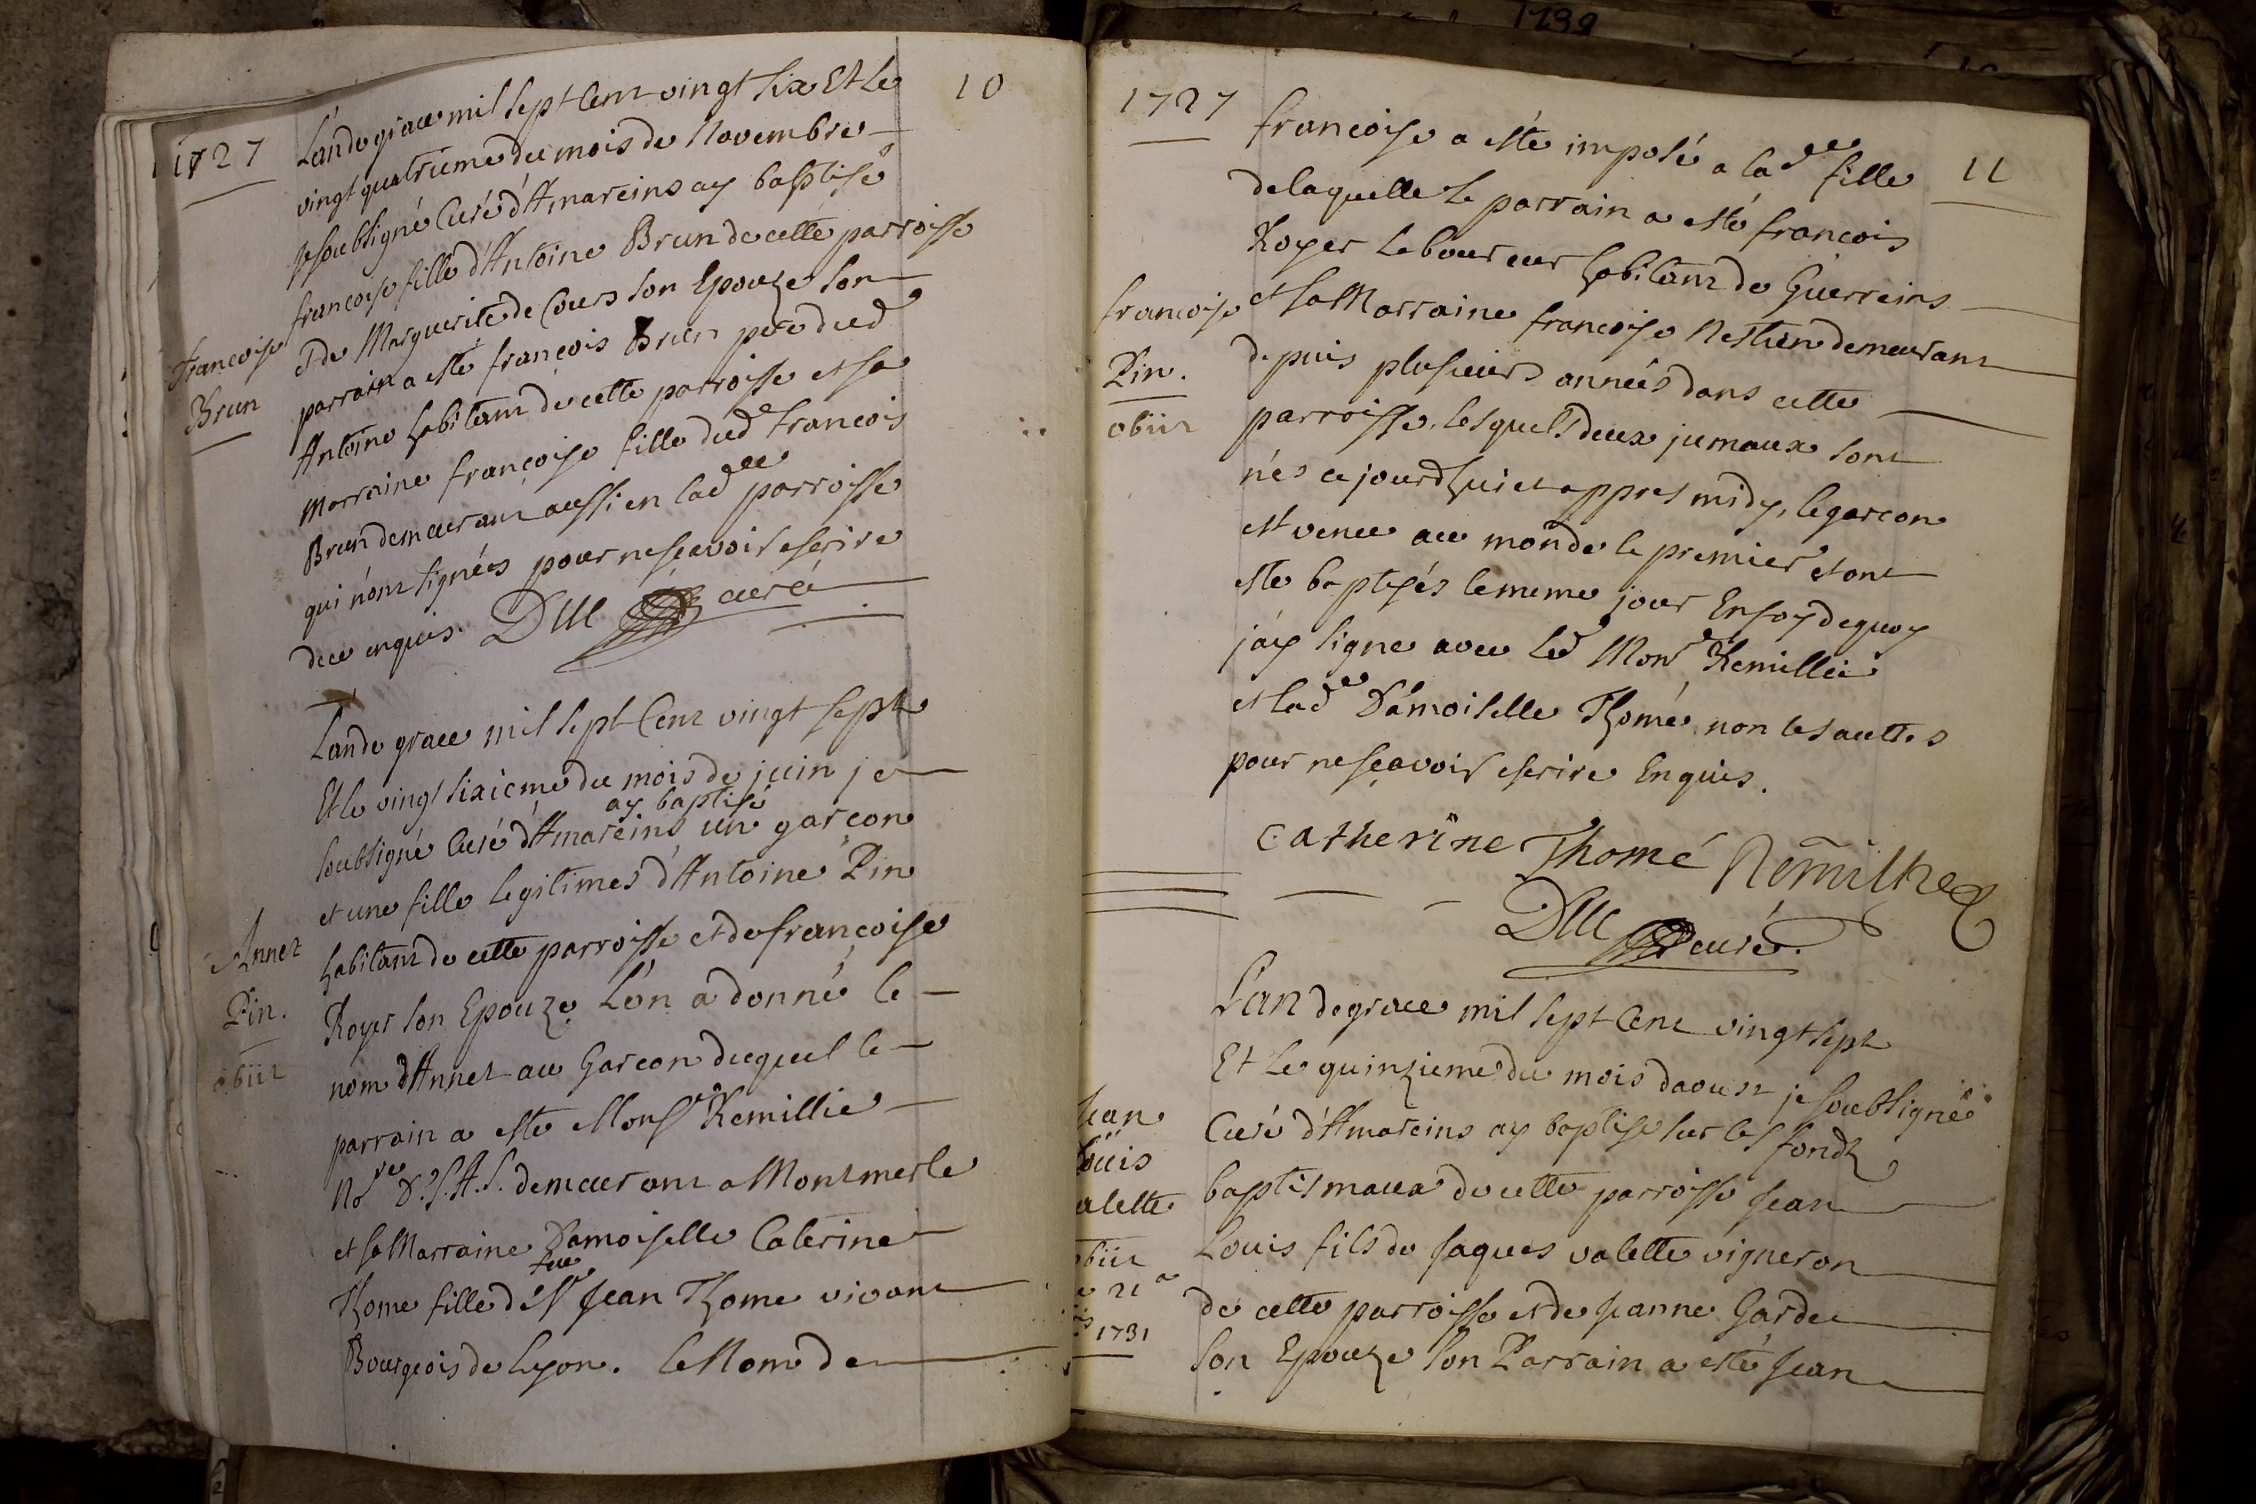 1739
1727
10
L'an de grace mil sept Cent vingt six Et le
vingt quatrieme du mois de Novembre
je soubsigné Curé d'Amareins ay baptisé
francoise fille d'Antoine Brun de cette parroisse
et de Marguerite de Cours son Epouze son
parrain a esté françois Brun pere dud
Antoine habitant de cette parroisse et sa
Marraine françoise fille dud francois
Brun demeurant aussi en lad.ee parroisse
qui n'ont signées pour ne sçavoir escrire
de ce enquis. Duc curé
Francoise
Brun
L'an de grace mil sept Cent vingt sept
Et le vingt sixieme du mois de juin je
soubsigné Curé d'Amareins ay baptisé un garçon
et une fille legitimes d'Antoine Pin
habitant de cette parroisse et de françoise
Royer son Epouze L'on a donné le
nom d'Annet au Garcon duquel le
parrain a esté Monsr Remillie
No.re D. S. A. S. demeurant a Montmerle
et sa Marraine Damoiselle Caterine
Thome fille de feu Sr Jean Thome vivant
Bourgeois de Lyon. le Nom de
Annet
Pin.
obiit
1727
11
francoise a esté imposé a lad.ee fille
de laquelle le parrain a esté francois
Royer laboureur habitant de Guerreins
et sa Marraine francoise demeurant
depuis plusieurs années dans cette
parroisse, lesquels deux jumaux sont
nés ce jourd'huiet appres midy, le garcon
est venu au monde le premier et ont
esté baptisés le meme jour En foy de quoy
j'ay signe avec led Monr Remillie
et lad.e Damoiselle Thomé non les auttes
pour ne sçavoir escrire Enquis.
francoise
Pin.
obiit
Catherine Thomé Remilhe
Duc curé.
L'an de grace mil sept Cent vingt sept
Et le quinzieme du mois daoust je soubsigné
Curé d'Amareins ay baptise sur les fondz
baptismaux de cette parroisse Jean
Louis fils de Jaques valette vigneron
de cette parroisse et de Jeanne Garde
son Epouze son Parrain a esté Jean
Jean
Louis
alette
obiit
21
1731